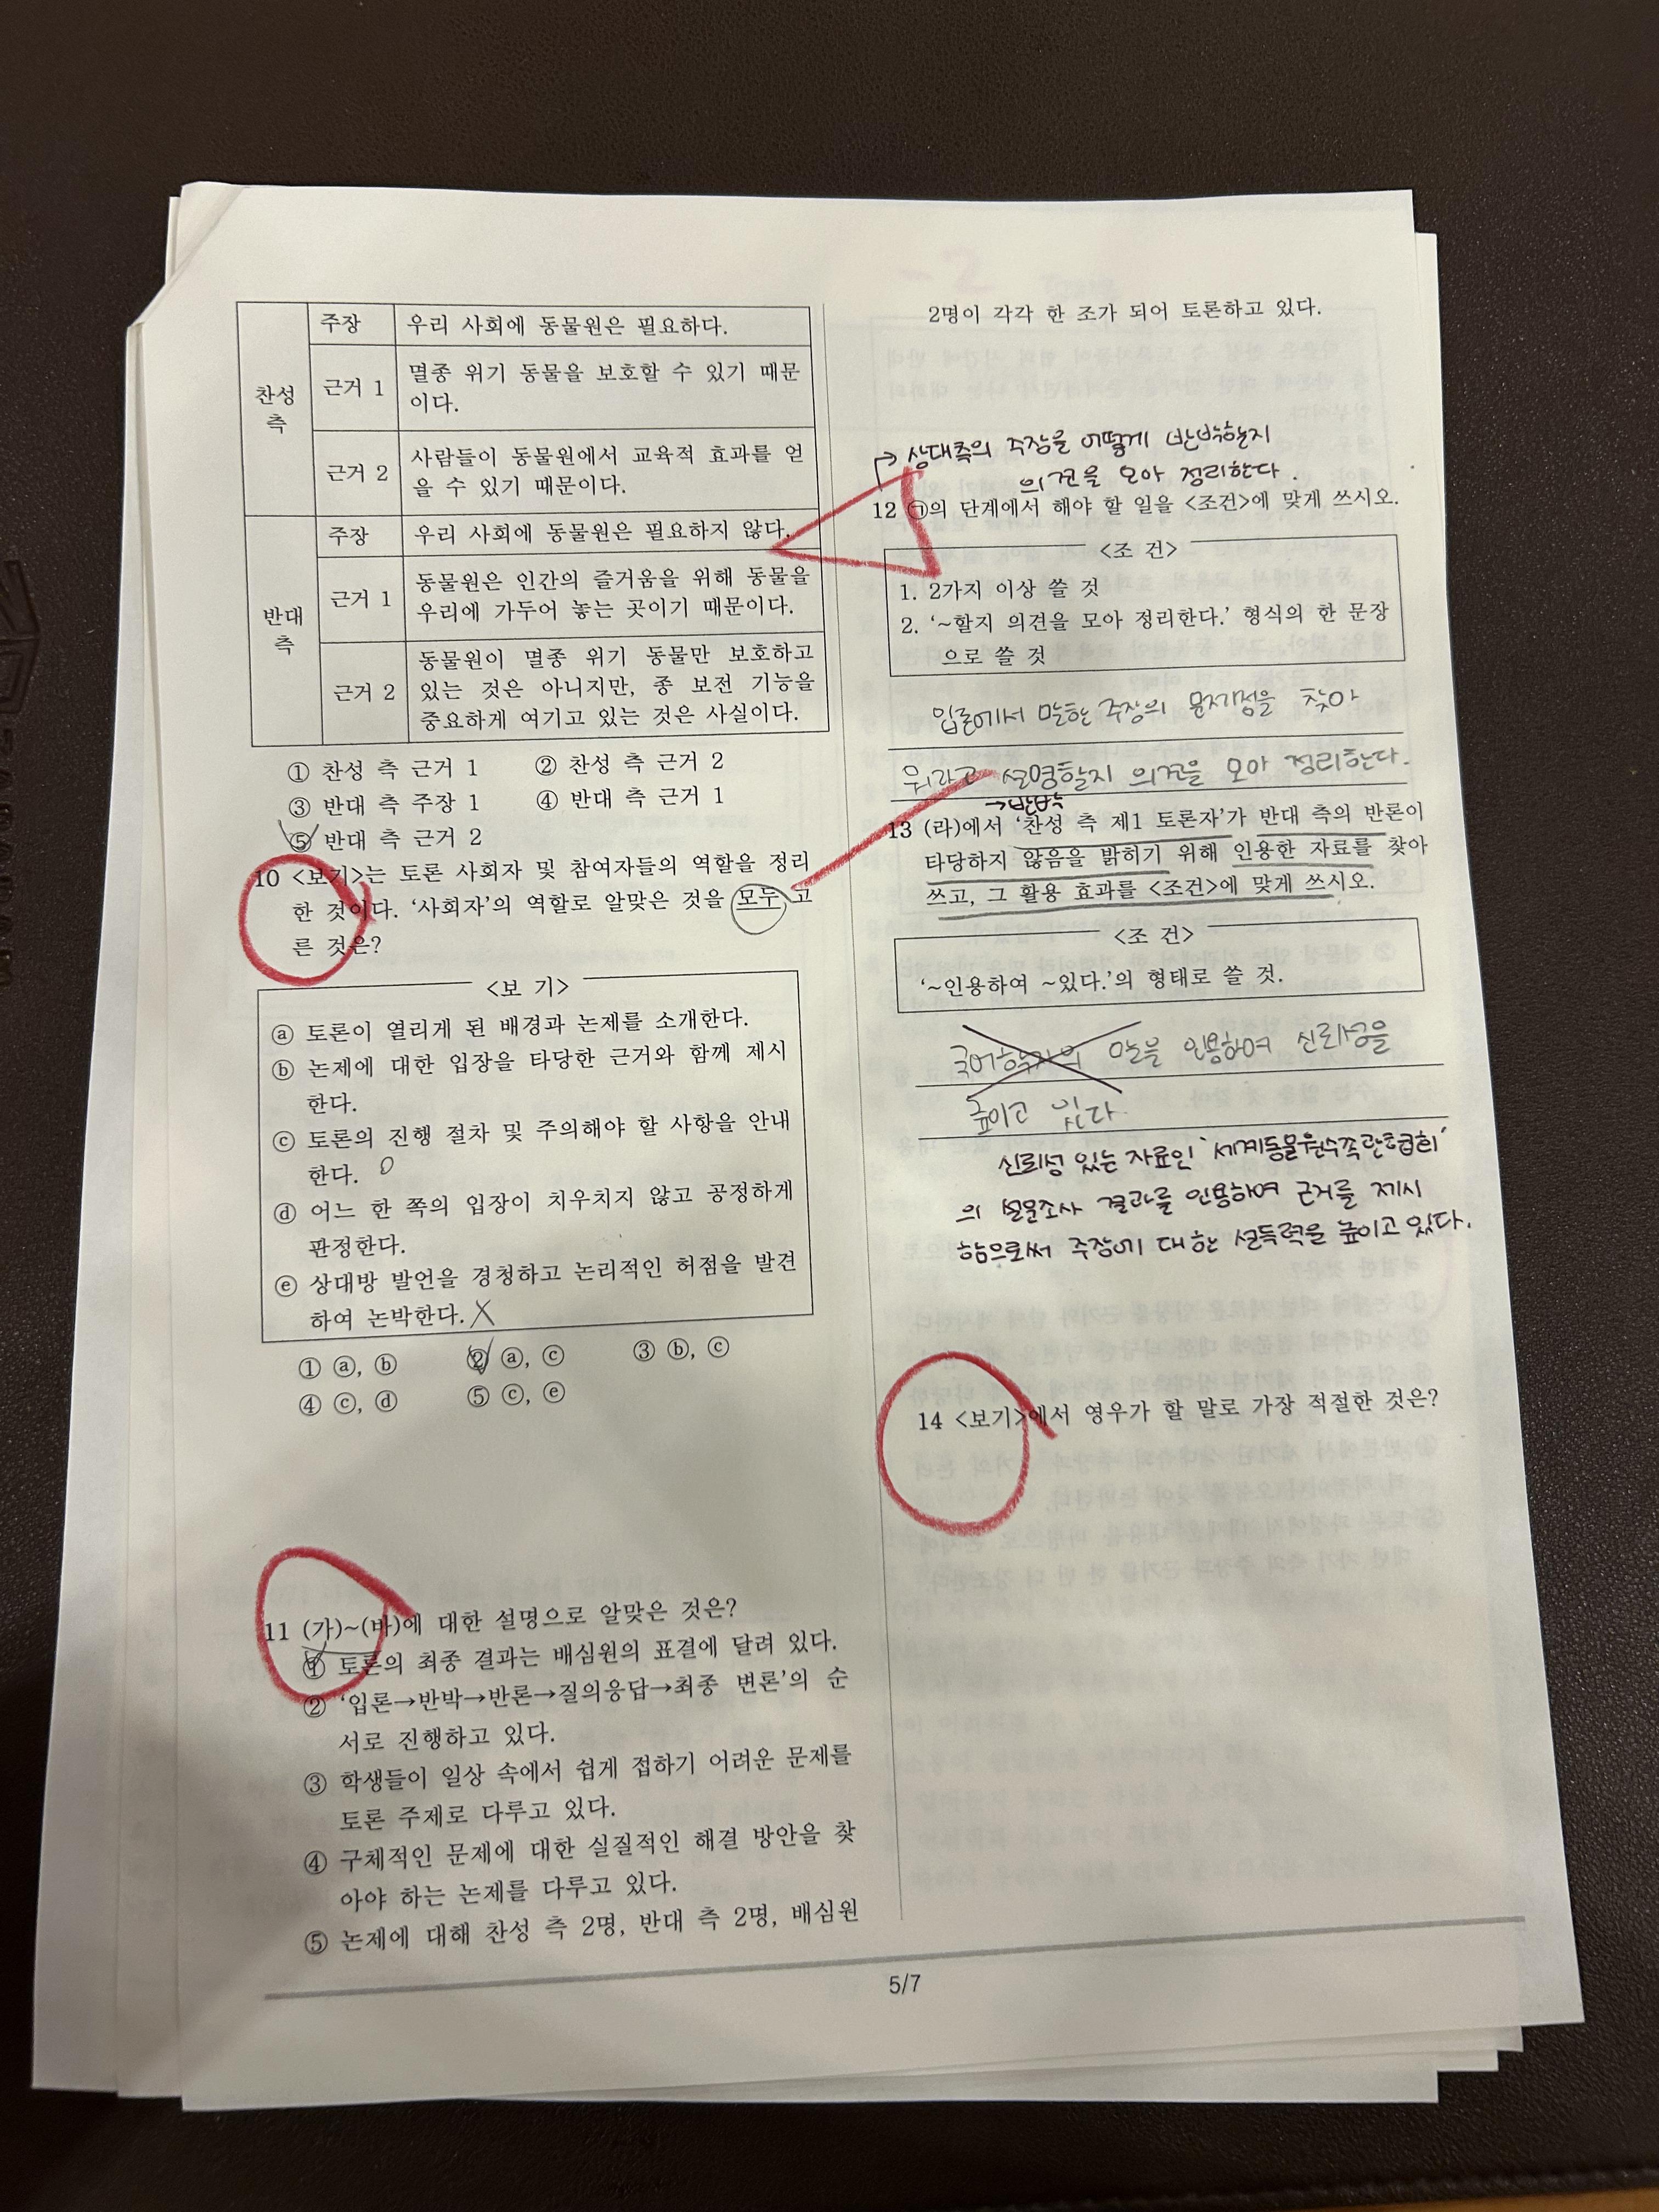 찬성 측
주장
우리 사회에 동물원은 필요하다.
근거 1
멸종 위기 동물을 보호할 수 있기 때문
이다.
근거 2
사람들이 동물원에서 교육적 효과를 얻
을 수 있기 때문이다.
반대 측
주장
우리 사회에 동물원은 필요하지 않다.
근거 1
동물원은 인간의 즐거움을 위해 동물을
우리에 가두어 놓는 곳이기 때문이다.
근거 2
동물원이 멸종 위기 동물만 보호하고
있는 것은 아니지만, 종 보전 기능을
중요하게 여기고 있는 것은 사실이다.
① 찬성 측 근거 1 ② 찬성 측 근거 2
③ 반대 측 주장 1 ④ 반대 측 근거 1
⑤ 반대 측 근거 2
10 <보기>는 토론 사회자 및 참여자들의 역할을 정리
한 것이다. ‘사회자’의 역할로 알맞은 것을 모두 고
른 것은?
<보 기>
ⓐ 토론이 열리게 된 배경과 논제를 소개한다.
ⓑ 논제에 대한 입장을 타당한 근거와 함께 제시
한다.
ⓒ 토론의 진행 절차 및 주의해야 할 사항을 안내
한다. O
ⓓ 어느 한 쪽의 입장이 치우치지 않고 공정하게
판정한다.
ⓔ 상대방 발언을 경청하고 논리적인 허점을 발견
하여 논박한다. X
① ⓐ, ⓑ ② ⓐ, ⓒ ③ ⓑ, ⓒ
④ ⓒ, ⓓ ⑤ ⓒ, ⓔ
11 (가)~(바)에 대한 설명으로 알맞은 것은?
① 토론의 최종 결과는 배심원의 표결에 달려 있다.
② ‘입론→반박→반론→질의응답→최종 변론’의 순
서로 진행하고 있다.
③ 학생들이 일상 속에서 쉽게 접하기 어려운 문제를
토론 주제로 다루고 있다.
④ 구체적인 문제에 대한 실질적인 해결 방안을 찾
아야 하는 논제를 다루고 있다.
⑤ 논제에 대해 찬성 측 2명, 반대 측 2명, 배심원
2명이 각각 한 조가 되어 토론하고 있다.
→ 상대측의 주장을 어떻게 반박할지
의견을 모아 정리한다.
12 ㉠의 단계에서 해야 할 일을 <조건>에 맞게 쓰시오.
<조 건>
1. 2가지 이상 쓸 것
2. ‘~할지 의견을 모아 정리한다.’ 형식의 한 문장
으로 쓸 것
입론에서 말한 주장의 문제점을 찾아
뭐라고 설명할지 의견을 모아 정리한다.
→반박
13 (라)에서 ‘찬성 측 제1 토론자’가 반대 측의 반론이
타당하지 않음을 밝히기 위해 인용한 자료를 찾아
쓰고, 그 활용 효과를 <조건>에 맞게 쓰시오.
<조 건>
‘~인용하여 ~있다.’의 형태로 쓸 것.
국어학자의 말을 인용하여 신뢰성을
높이고 있다.
신뢰성 있는 자료인 '세계동물원수족관협회'
의 설문조사 결과를 인용하여 근거를 제시
함으로써 주장에 대한 설득력을 높이고 있다.
14 <보기>에서 영우가 할 말로 가장 적절한 것은?
5/7